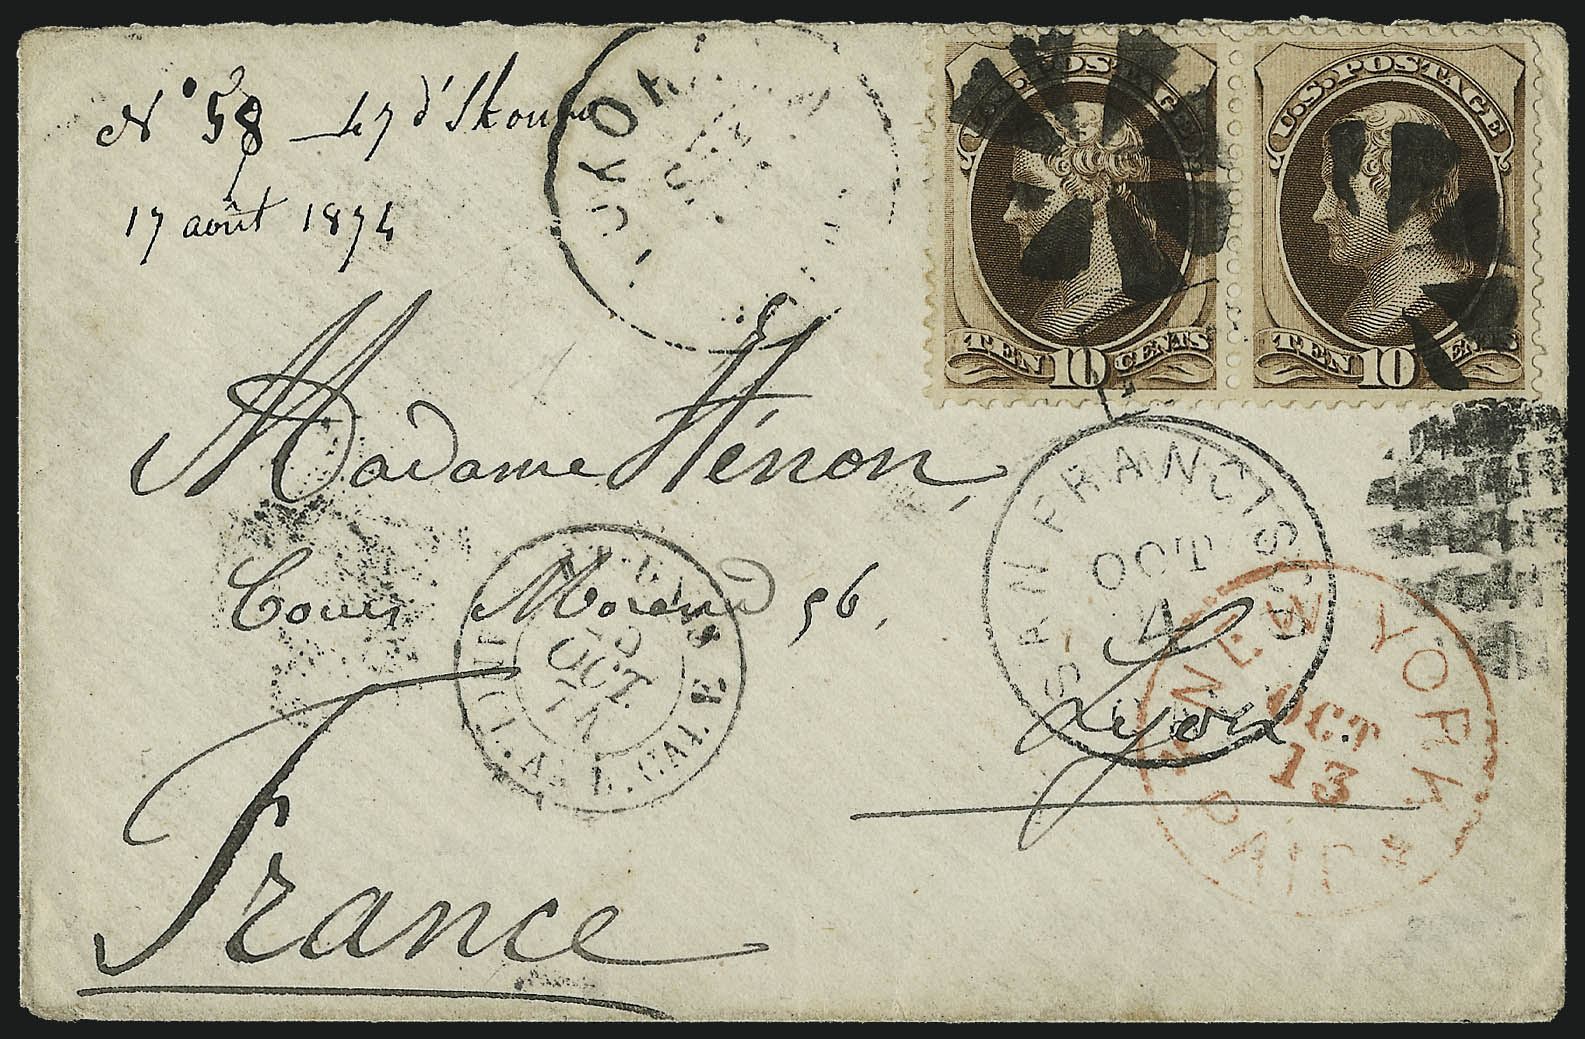 Nº 58 d'Ikouno
17 août 1874
YOKOHAMA
U.S. POSTAGE
TEN 10 CENTS
U.S. POSTAGE
TEN 10 CENTS
Madame Hénon,
Cours Morand 56.
Lyon.
France
SAN FRANCISCO
OCT
NEW YORK
OCT
13
PAID
OCT
74